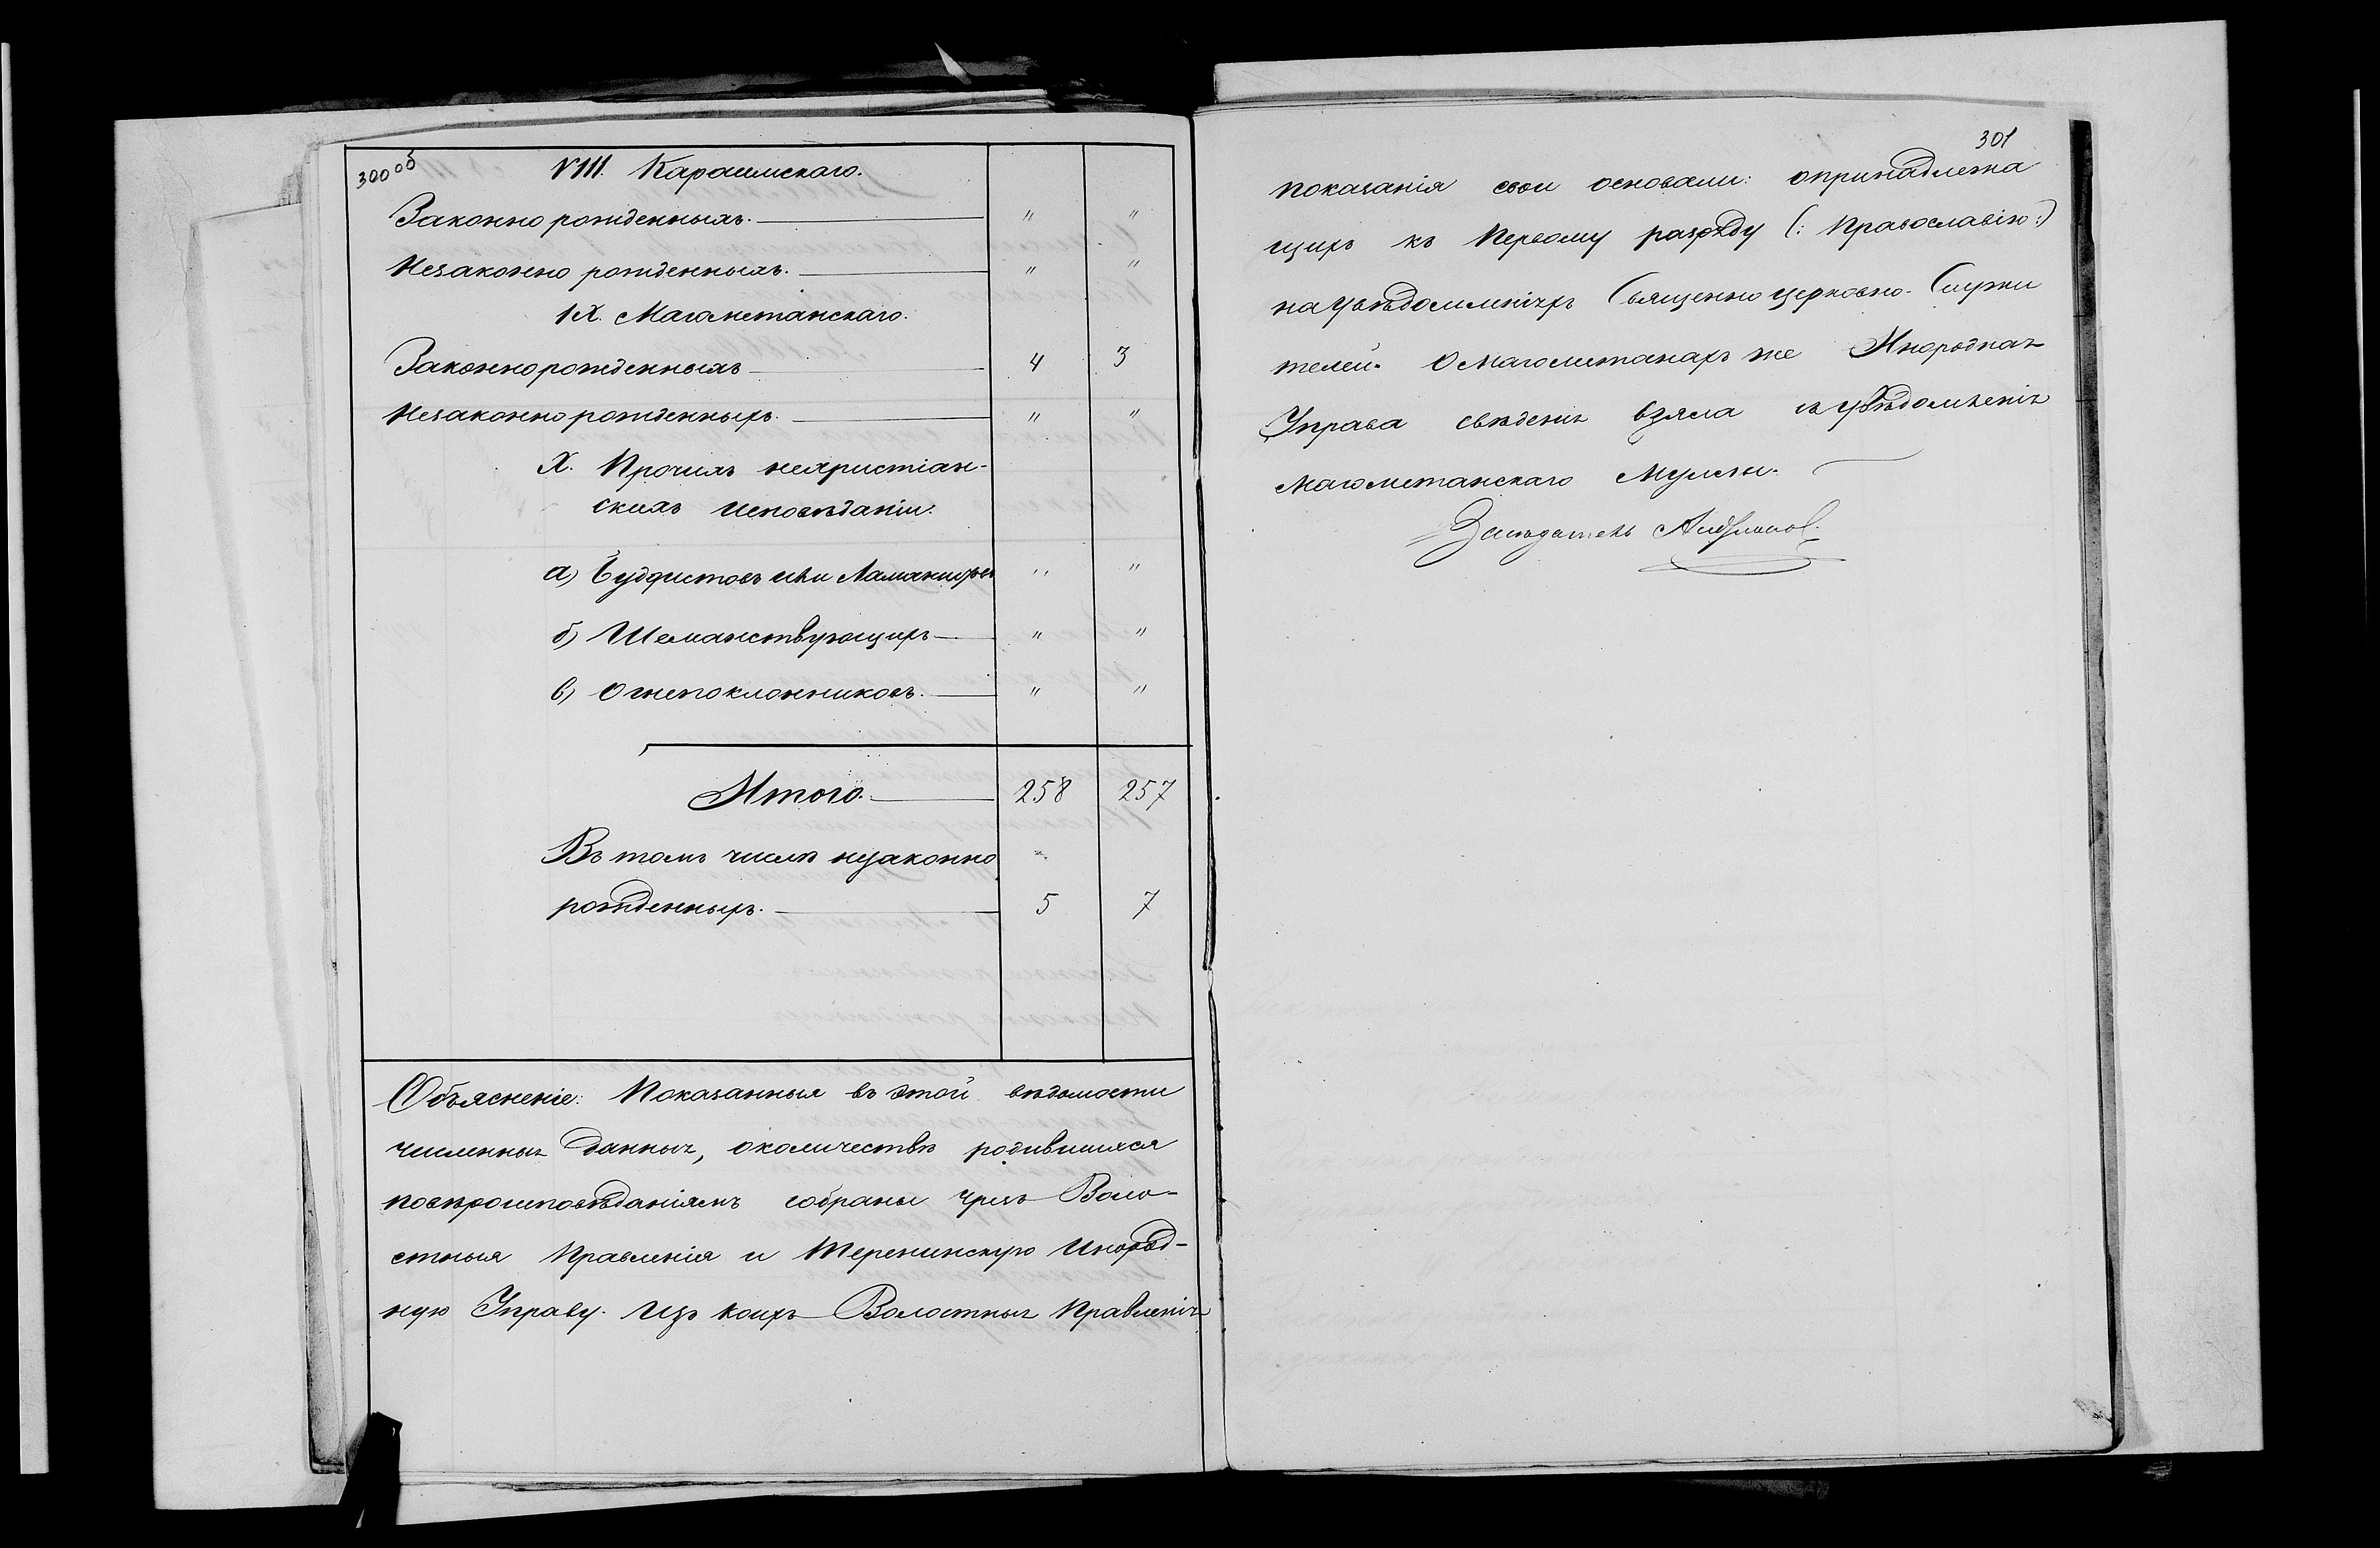 300 об
VIII. Караимскаго.
Законно рожденныхъ. " "
Незаконно рожденныхъ. " "
IX. Магометанскаго.
Законнорожденныхъ 4 3
Незаконно рожденныхъ. " "
X. Прочихъ нехристіан-
скихъ исповѣданіи.
а) Буддистовъ или Ламаистовъ " "
б) Шаманствующихъ " "
в) Огнепоклонниковъ. " "
Итого. 258 257
Въ томъ числѣ незаконно
рожденныхъ. 5 7
Объясненіе: Показанныя въ этой вѣдомости
численныя данныя, околичествѣ родившихся
повѣроисповѣданіямъ собраны чрезъ Воло-
стныя Правленія и Инород-
ную Управу. Изъ коихъ Волостныя Правленія
301
показанія свои основали: опринадлежа
щихъ къ Первому разряду (: Православію:)
науведомленіяхъ Священно церковно-Служи
телей. О Магометанахъ же Инородная
Управа сведеніе взяла изъ увѣдомленія
Магометанскаго Муллы.
Засѣдатель